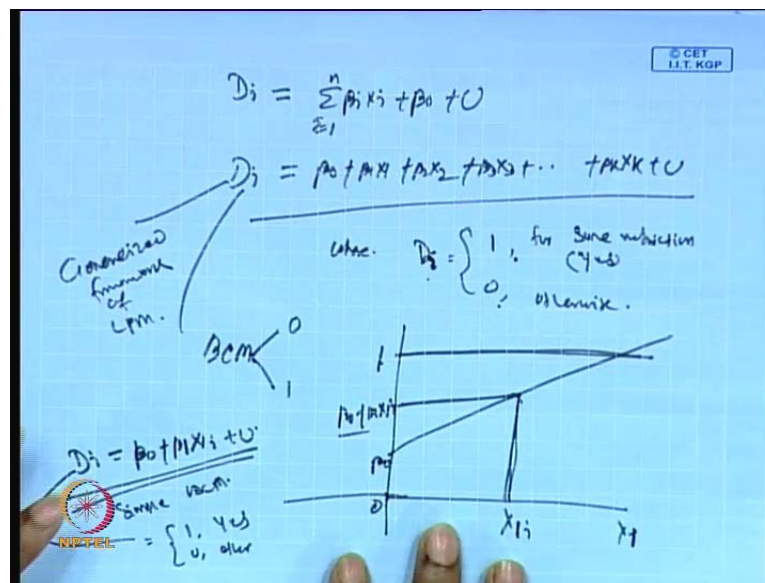 © CET
I.I.T. KGP
Di = Σ βi xi + β0 + U
n
i=1
Di = β0 + β1x1 + β2x2 + β3x3 + ·· + βkxk + U
Generalized
framework
of
LPM.
where. Di = { 1, for some restriction
(Yes)
0, otherwise.
BCM
0
1
1
β0+β1x1i
β0
0
X1i
X1
Di = β0 + β1x1i + U
Simple BCM.
= { 1, Yes
0, other
NPTEL